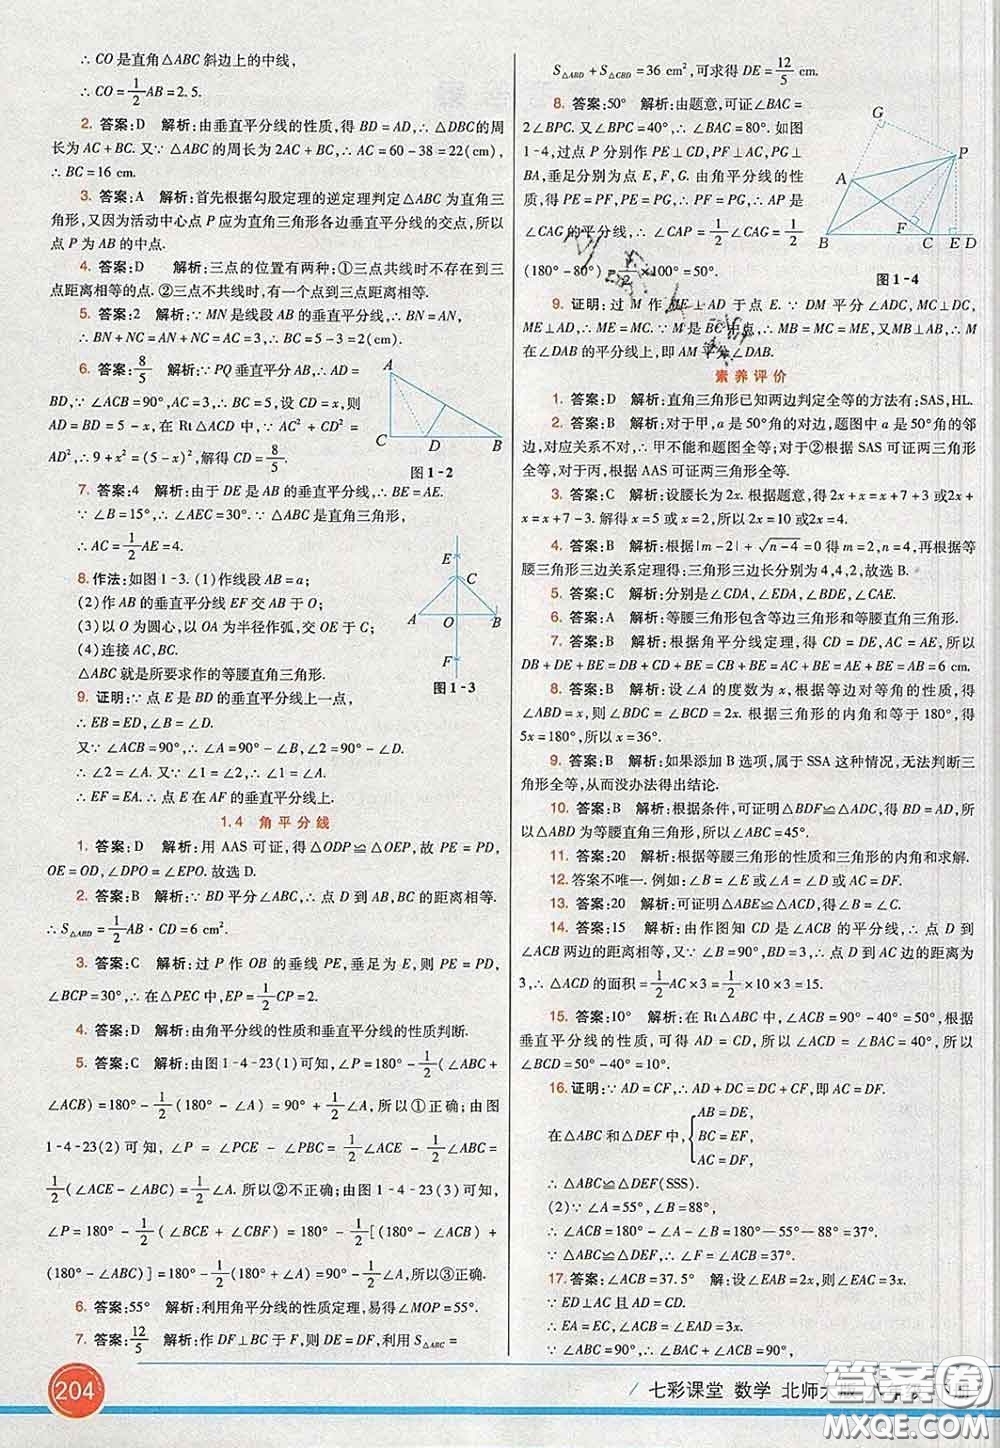 ∴ CO 是直角△ABC 斜边上的中线,
∴ CO=1/2AB=2.5.
2. 答案:D 解析:由垂直平分线的性质,得 BD=AD,∴ △DBC的周
长为 AC+BC. 又∵ △ABC 的周长为 2AC+BC,∴ AC=60-38=22(cm),
∴ BC=16 cm.
3. 答案:A 解析:首先根据勾股定理的逆定理判定△ABC 为直角三
角形,又因为活动中心点 P 应为直角三角形各边垂直平分线的交点,所以
点 P 为 AB 的中点.
4. 答案:D 解析:三点的位置有两种:①三点共线时不存在到三
点距离相等的点. ②三点不共线时,有一个点到三点的距离相等.
5. 答案:2 解析:∵ MN 是线段 AB 的垂直平分线,∴ BN=AN,
∴ BN+NC=AN+NC=AC=3,∴ BC=5-3=2(cm).
6. 答案:8/5 解析:∵ PQ 垂直平分 AB,∴ AD=
BD,∵ ∠ACB=90°,AC=3,BC=5,设 CD=x,则
AD=BD=5-x,在 Rt△ACD 中,∵ AC²+CD²=
AD²,∴ 9+x²=(5-x)²,解得 CD=8/5.
A
C D B
图 1-2
7. 答案:4 解析:由于 DE 是 AB 的垂直平分线,∴ BE=AE.
∵ ∠B=15°,∴ ∠AEC=30°. ∵ △ABC 是直角三角形,
∴ AC=1/2AE=4.
8. 作法:如图 1-3. (1)作线段 AB=a;
(2)作 AB 的垂直平分线 EF 交 AB 于 O;
(3)以 O 为圆心,以 OA 为半径作弧,交 OE 于 C;
(4)连接 AC,BC.
△ABC 就是所要求作的等腰直角三角形.
E
C
A O B
F
图 1-3
9. 证明:∵ 点 E 是 BD 的垂直平分线上一点,
∴ EB=ED,∠B=∠D.
又∵ ∠ACB=90°,∴ ∠A=90°-∠B,∠2=90°-∠D.
又∵ ∠1=∠2,∴ ∠A=∠1.
∴ EF=EA. ∴ 点 E 在 AF 的垂直平分线上.
1.4 角平分线
1. 答案:D 解析:用 AAS 可证,得△ODP≌△OEP,故 PE=PD,
OE=OD,∠DPO=∠EPO. 故选 D.
2. 答案:B 解析:∵ BD 平分∠ABC,∴ 点 D 到 AB,BC 的距离相等.
∴ S△ABD=1/2AB·CD=6 cm².
3. 答案:C 解析:过 P 作 OB 的垂线 PE,垂足为 E,则 PE=PD,
∠BCP=30°,∴ 在△PEC 中,EP=1/2CP=2.
4. 答案:D 解析:由角平分线的性质和垂直平分线的性质判断.
5. 答案:C 解析:由图 1-4-23(1)可知,∠P=180°-1/2(∠ABC+
∠ACB)=180°-1/2(180°-∠A)=90°+1/2∠A,所以①正确;由图
1-4-23(2)可知,∠P=∠PCE-∠PBC=1/2∠ACE-1/2∠ABC=
1/2(∠ACE-∠ABC)=1/2∠A. 所以②不正确;由图 1-4-23(3)可知,
∠P=180°-1/2(∠BCE+∠CBF)=180°-1/2[(180°-∠ACB)+
(180°-∠ABC)]=180°-1/2(180°+∠A)=90°-1/2∠A,所以③正确.
6. 答案:55° 解析:利用角平分线的性质定理,易得∠MOP=55°.
7. 答案:12/5 解析:作 DF⊥BC 于 F,则 DE=DF,利用 S△ABC=
S△ABD+S△CBD=36 cm²,可求得 DE=12/5 cm.
8. 答案:50° 解析:由题意,可证∠BAC=
2∠BPC. 又∠BPC=40°,∴ ∠BAC=80°. 如图
1-4,过点 P 分别作 PE⊥CD,PF⊥AC,PG⊥
BA,垂足分别为点 E,F,G. 由角平分线的性质,
得 PE=PF,PE=PG,∴ PG=PF,∴ AP 是
∠CAG 的平分线,∴ ∠CAP=1/2∠CAG=1/2
(180°-80°)=1/2×100°=50°.
G
P
A
F
B C E D
图 1-4
9. 证明:过 M 作 ME⊥AD 于点 E. ∵ DM 平分∠ADC,MC⊥DC,
ME⊥AD,∴ MC=ME. ∵ M 是 BC 中点,∴ MB=MC=ME,又MB⊥AB,∴ M
在∠DAB 的平分线上,即 AM 平分∠DAB.
素养评价
1. 答案:D 解析:直角三角形已知两边判定全等的方法有:SAS,HL.
2. 答案:B 解析:对于甲,a 是 50°角的对边,题图中 a 是 50°角的邻
边,对应关系不对,∴ 甲不能和题图全等;对于②根据 SAS 可证两三角形全
等,对于丙,根据 AAS 可证两三角形全等.
3. 答案:C 解析:设腰长为 2x. 根据题意,得 2x+x=x+7+3 或2x+
x=x+7-3. 解得 x=5 或 x=2,所以 2x=10 或2x=4.
4. 答案:B 解析:根据|m-2|+√n-4=0 得 m=2,n=4,再根据等
腰三角形三边关系定理得:三角形三边长分别为 4,4,2,故选 B.
5. 答案:C 解析:分别是∠CDA,∠EDA,∠BDE,∠CAE.
6. 答案:A 解析:等腰三角形包含等边三角形和等腰直角三角形.
7. 答案:B 解析:根据角平分线定理,得 CD=DE,AC=AE,所以
DB+DE+BE=DB+CD+BE=CB+BE=AC+BE=AE+BE=AB=6 cm.
8. 答案:B 解析:设∠A 的度数为 x,根据等边对等角的性质,得
∠ABD=x,则∠BDC=∠BCD=2x. 根据三角形的内角和等于 180°,得
5x=180°,所以 x=36°.
9. 答案:B 解析:如果添加 B 选项,属于 SSA 这种情况,无法判断三
角形全等,从而没办法得出结论.
10. 答案:B 解析:根据条件,可证明△BDF≌△ADC,得 BD=AD,所
以△ABD 为等腰直角三角形,所以∠ABC=45°.
11. 答案:20 解析:根据等腰三角形的性质和三角形的内角和求解.
12. 答案不唯一. 例如:∠B=∠E 或∠A=∠D 或 AC=DF.
13. 答案:20 解析:可证明△ABE≌△ACD,得∠B=∠C.
14. 答案:15 解析:由作图知 CD 是∠ACB 的平分线,∴ 点 D 到
∠ACB 两边的距离相等,又∵ ∠B=90°,BD=3,∴ 点 D 到 AC 边的距离为
3,∴ △ACD 的面积=1/2AC×3=1/2×10×3=15.
15. 答案:10° 解析:在 Rt△ACB 中,∠ACB=90°-40°=50°,根据
垂直平分线的性质,可得 AD=CD,所以∠ACD=∠BAC=40°,所以
∠BCD=50°-40°=10°.
16. 证明:∵ AD=CF,∴ AD+DC=DC+CF,即 AC=DF.
在△ABC 和△DEF 中,{AB=DE,
BC=EF,
AC=DF,
∴ △ABC≌△DEF(SSS).
(2)∵ ∠A=55°,∠B=88°,
∴ ∠ACB=180°-∠A-∠B=180°-55°-88°=37°.
∵ △ABC≌△DEF,∴ ∠F=∠ACB=37°.
17. 答案:∠ACB=37.5° 解:设∠EAB=2x,则∠BAC=5x.
∵ ED⊥AC 且 AD=CD,
∴ EA=EC,∴ ∠ACB=∠EAC=3x.
∵ ∠ABC=90°,∴ ∠ACB+∠BAC=90°,
204
七彩课堂 数学 北师大版
答案圈
MXQE.COM